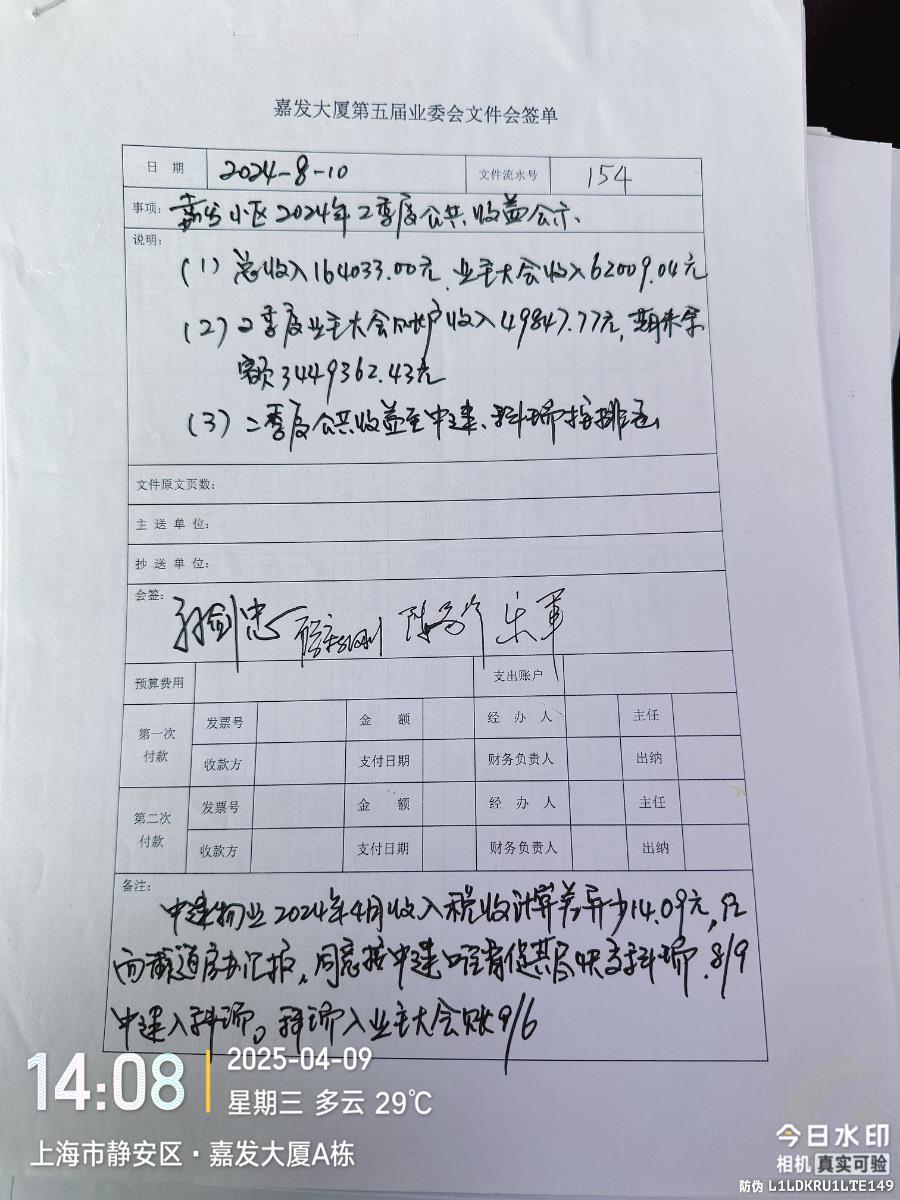 嘉发大厦第五届业委会文件会签单
日 期 2024-8-10 文件流水号 154
事项: 嘉发小区2024年2季度公共收益公示.
说明:
(1) 总收入164033.00元,业主大会收入62009.04元
(2) 2季度业主大会账户收入49847.77元,期末余
额3449362.43元
(3) 二季度公共收益至中建、科瑞
文件原文页数:
主 送 单 位:
抄 送 单 位:
会签: 孙剑忠
预算费用 支出账户
第一次付款 发票号 金 额 经 办 人 主任
收款方 支付日期 财务负责人 出纳
第二次付款 发票号 金 额 经 办 人 主任
收款方 支付日期 财务负责人 出纳
备注:
中建物业2024年4月收入税收计算差异少14.09元,
同意按中建 督促其尽快交科瑞.8/9
中建入科瑞。科瑞入业主大会账9/6
14:08
2025-04-09
星期三 多云 29℃
上海市静安区·嘉发大厦A栋
今日水印
相机 真实可验
防伪 L1LDKRU1LTE149